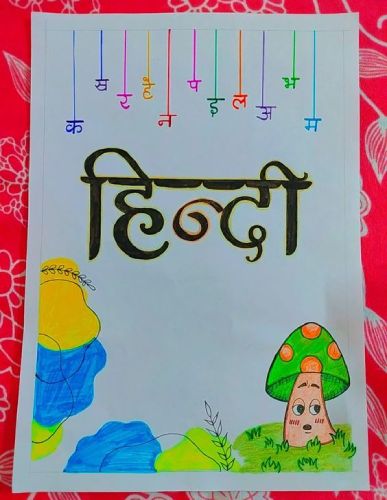 क ब र है न प इ ल अ भ म
हिन्दी